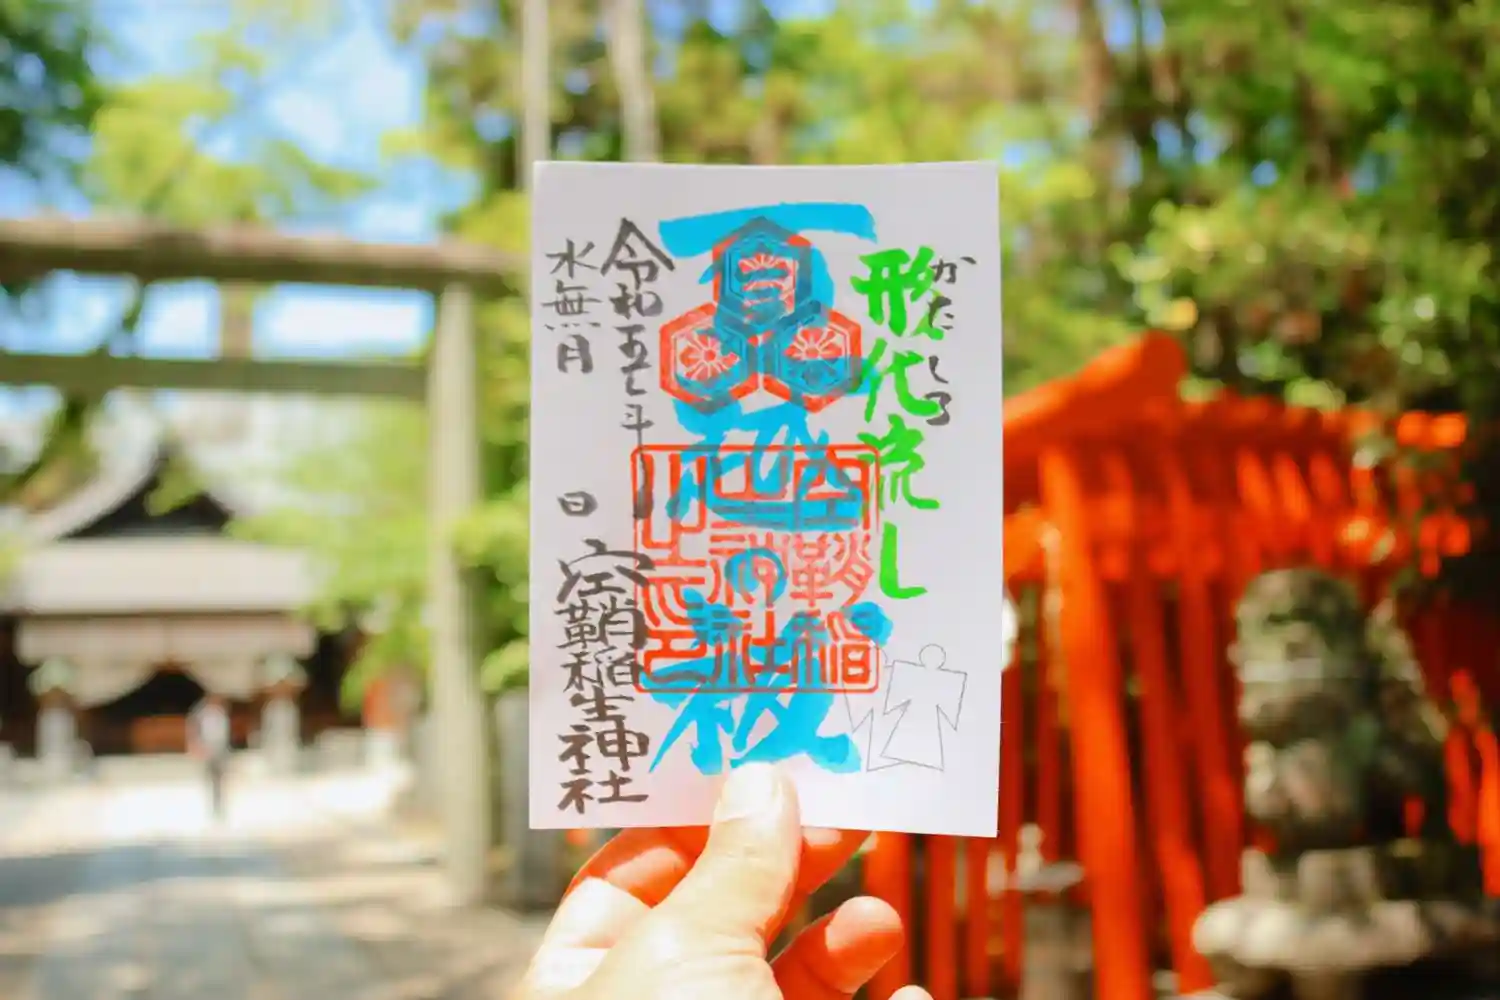 形代流し
かたしろ
夏越の祓
空鞘稲生神社之印
令和五年
水無月 日
空鞘稲生神社